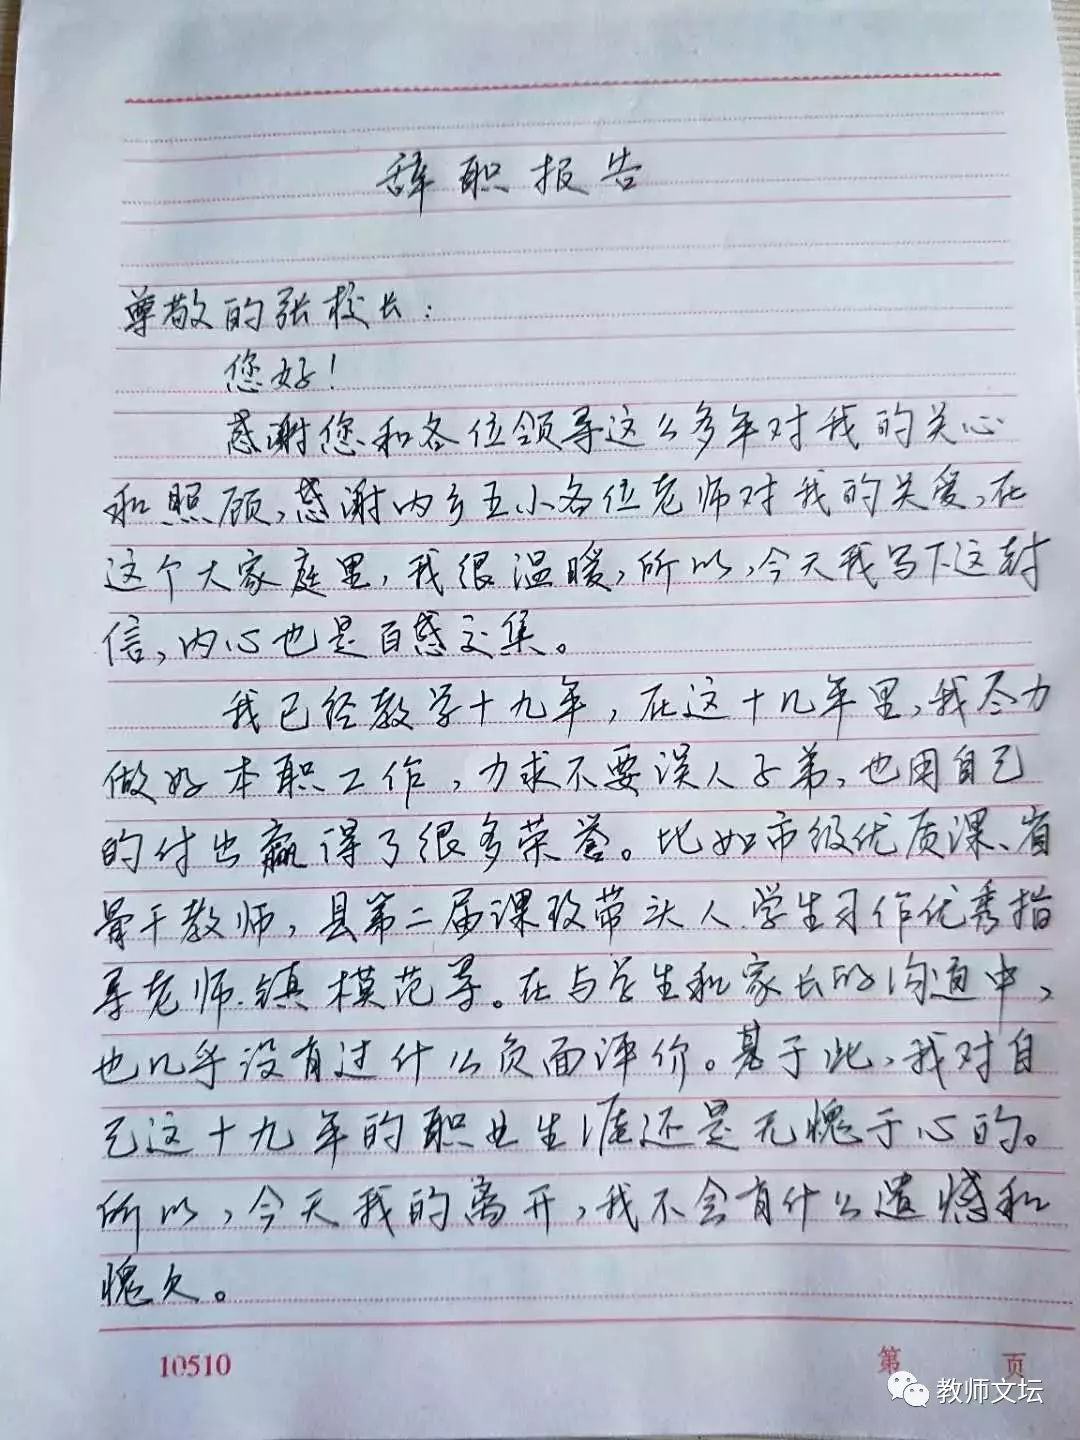 辞职报告
尊敬的张校长：
您好！
感谢您和各位领导这么多年对我的关心
和照顾，感谢内乡五小各位老师对我的关爱，在
这个大家庭里，我很温暖，所以，今天我写下这封
信，内心也是百感交集。
我已经教学十九年，在这十九年里，我尽力
做好本职工作，力求不要误人子弟，也用自己
的付出赢得了很多荣誉。比如市级优质课、省
骨干教师，县第二届课改带头人、学生习作优秀指
导老师、镇模范等。在与学生和家长的沟通中，
也几乎没有过什么负面评价。基于此，我对自
己这十九年的职业生涯还是无愧于心的。
所以，今天我的离开，我不会有什么遗憾和
愧欠。
10510 第 页
教师文坛